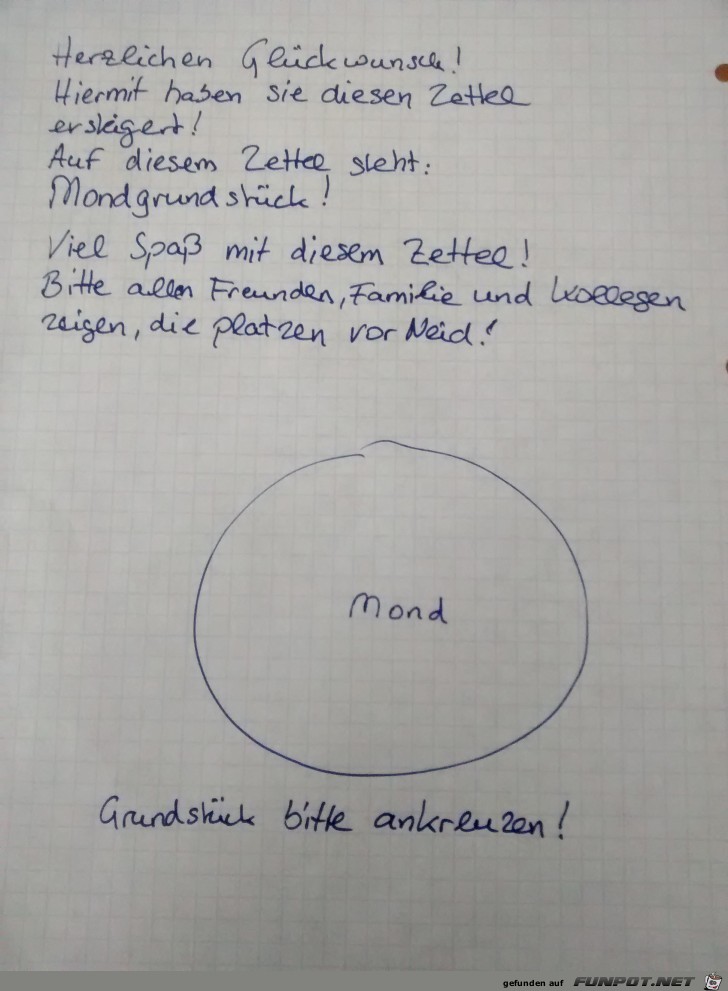 Herzlichen Glückwunsch!
Hiermit haben sie diesen Zettel
ersteigert!
Auf diesem Zettel steht:
Mondgrundstück!
Viel Spaß mit diesem Zettel!
Bitte allen Freunden, Familie und Kollegen
zeigen, die platzen vor Neid!
Mond
Grundstück bitte ankreuzen!
gefunden auf FUNPOT.NET